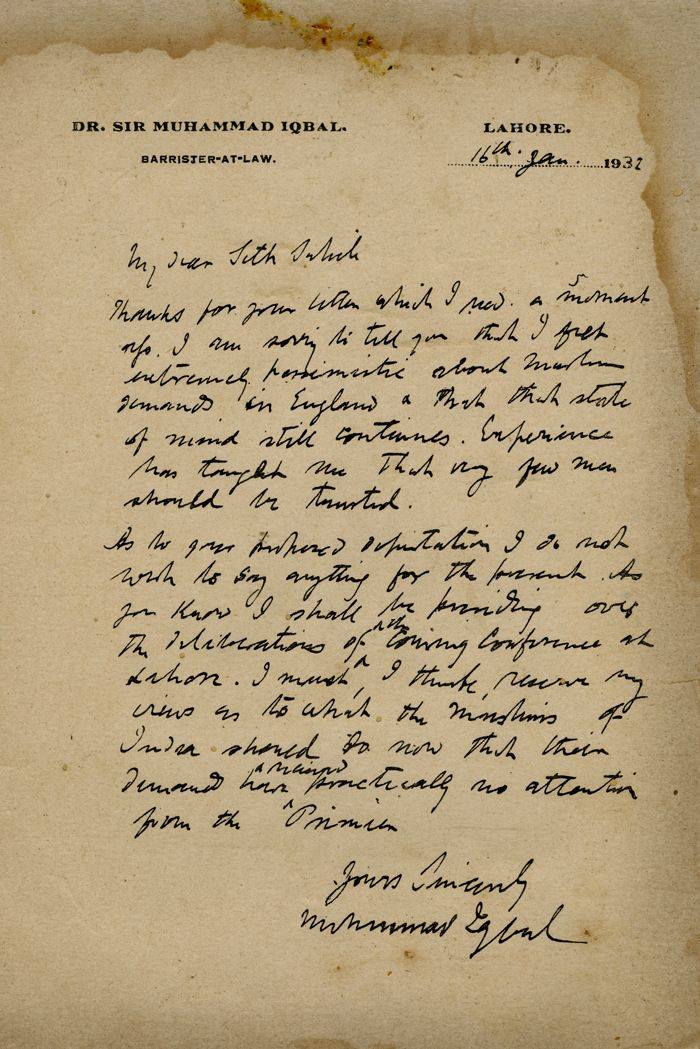 DR. SIR MUHAMMAD IQBAL.
BARRISTER-AT-LAW.
LAHORE.
16th. Jan. 1932
My dear Seth Sahib
Thanks for your letter which I recd. a moment
ago. I am sorry to tell you that I felt
extremely pessimistic about Muslim
demands in England & that that state
of mind still continues. Experience
has taught me that very few men
should be trusted.
As to your proposed deputation I do not
wish to say anything for the present. As
you know I shall be presiding over
the deliberations of the coming Conference at
Lahore. I must, I think, reserve my
views as to what the Muslims of
India should do now that their
demands have received practically no attention
from the Premier
Yours Sincerely
Muhammad Iqbal